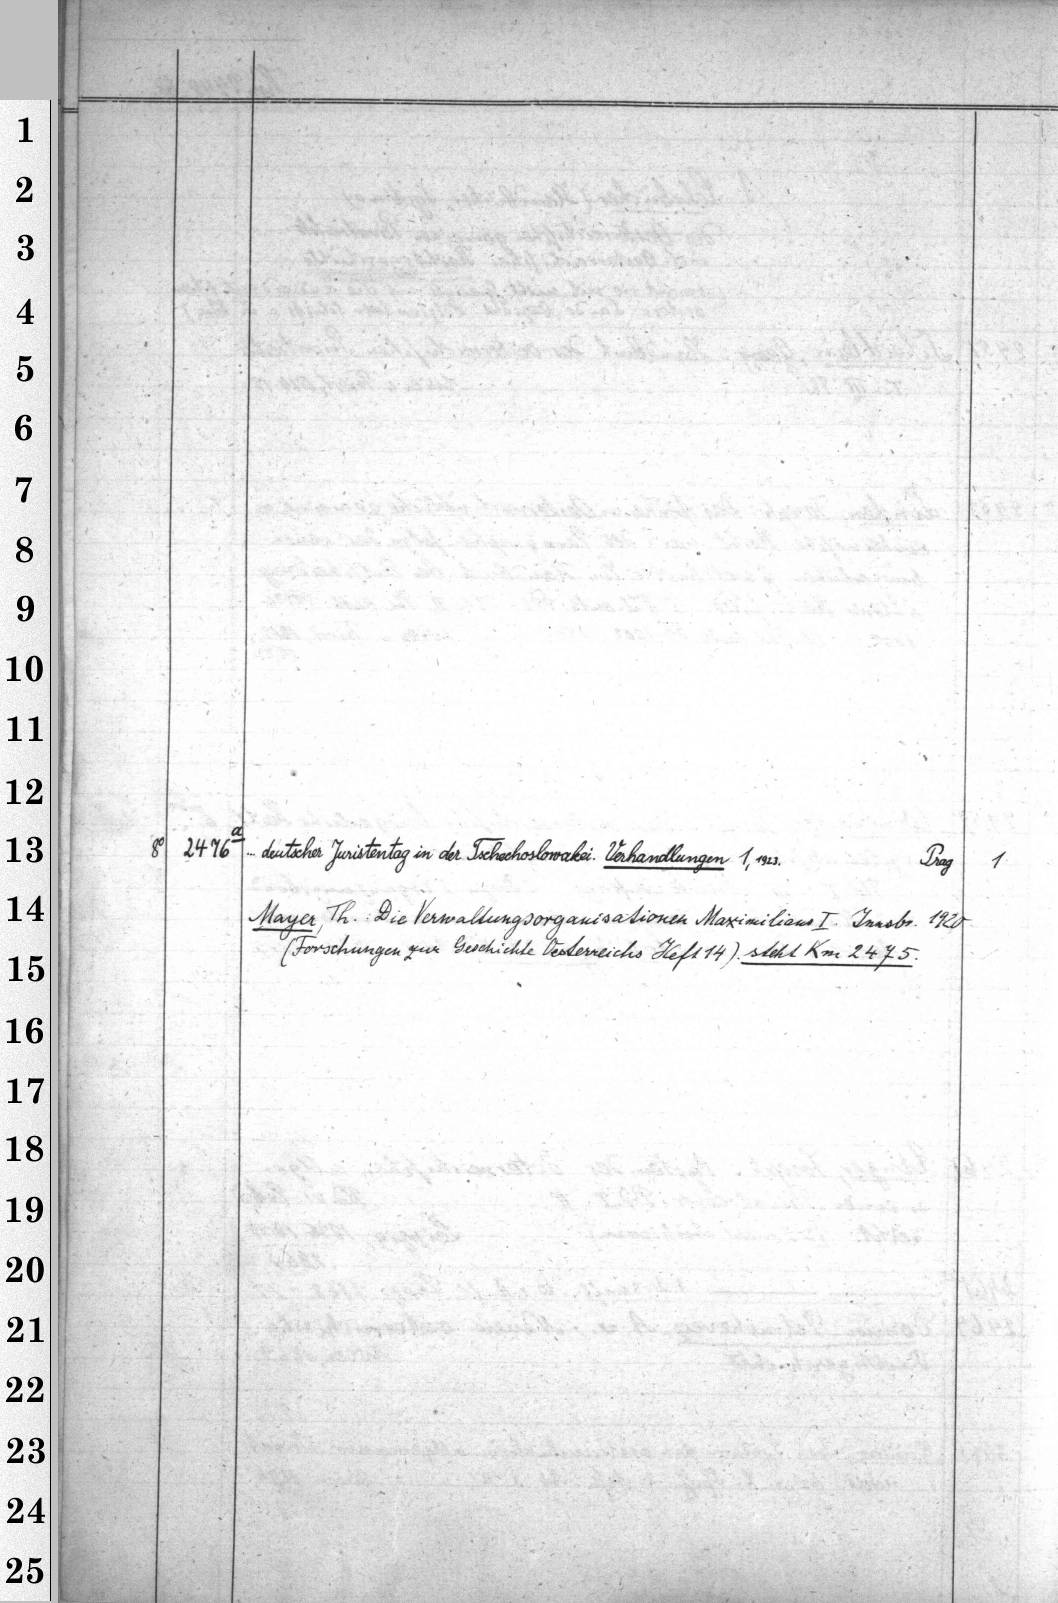 1
2
3
4
5
6
7
8
9
10
11
12
13
8° 2476a ... deutscher Juristentag in der Tschechoslowakei. Verhandlungen 1, 1923. Prag 1
14
Mayer, Th.: Die Verwaltungsorganisationen Maximilians I. Innsbr. 1920
(Forschungen zur Geschichte Oesterreichs Heft 14). steht Km 2475.
15
16
17
18
19
20
21
22
23
24
25